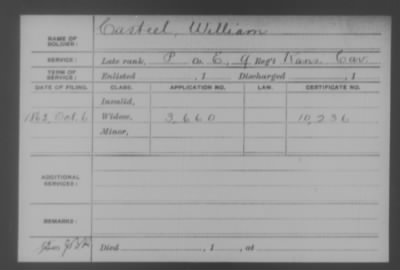 NAME OF SOLDIER: Casteel, William
SERVICE: Late rank, P Co. E, 9 Reg't Kans. Cav.
TERM OF SERVICE: Enlisted , 1 Discharged , 1
DATE OF FILING. CLASS. APPLICATION NO. LAW. CERTIFICATE NO.
Invalid,
1862, Oct. 6 Widow, 3,660 10,236
Minor,
ADDITIONAL SERVICES:
REMARKS:
Died , 1 , at